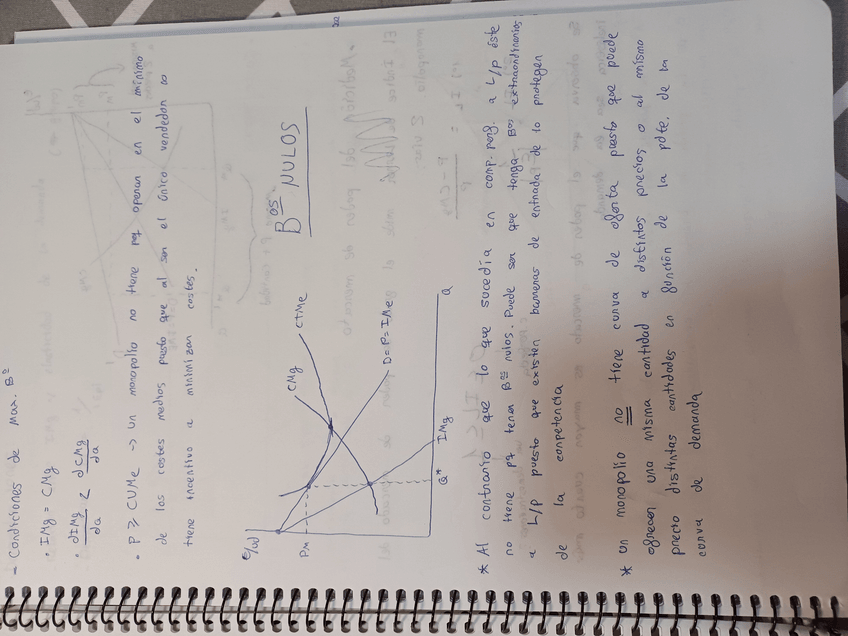 - Condiciones de Max. Bº
· IMg = CMg
· dIMg/dQ < dCMg/dQ
· P ≥ CVMe → Un monopolio no tiene pq operar en el mínimo
de los costes medios puesto que al ser el único vendedor no
tiene incentivo a minimizar costes.
€/ud
BOS NULOS
CMg
CTMe
PM
D=P=IMe
IMg
Q*
Q
* Al contrario que lo que sucedía en comp. perf. a L/p éste
no tiene pq tener Bos nulos. Puede ser que tenga Bos extraordinarios
a L/p puesto que existen barreras de entrada de lo protegen
de la competencia
* Un monopolio no tiene curva de oferta puesto que puede
ofrecer una misma cantidad a distintos precios o al mismo
precio distintas cantidades en función de la pdte. de la
curva de demanda